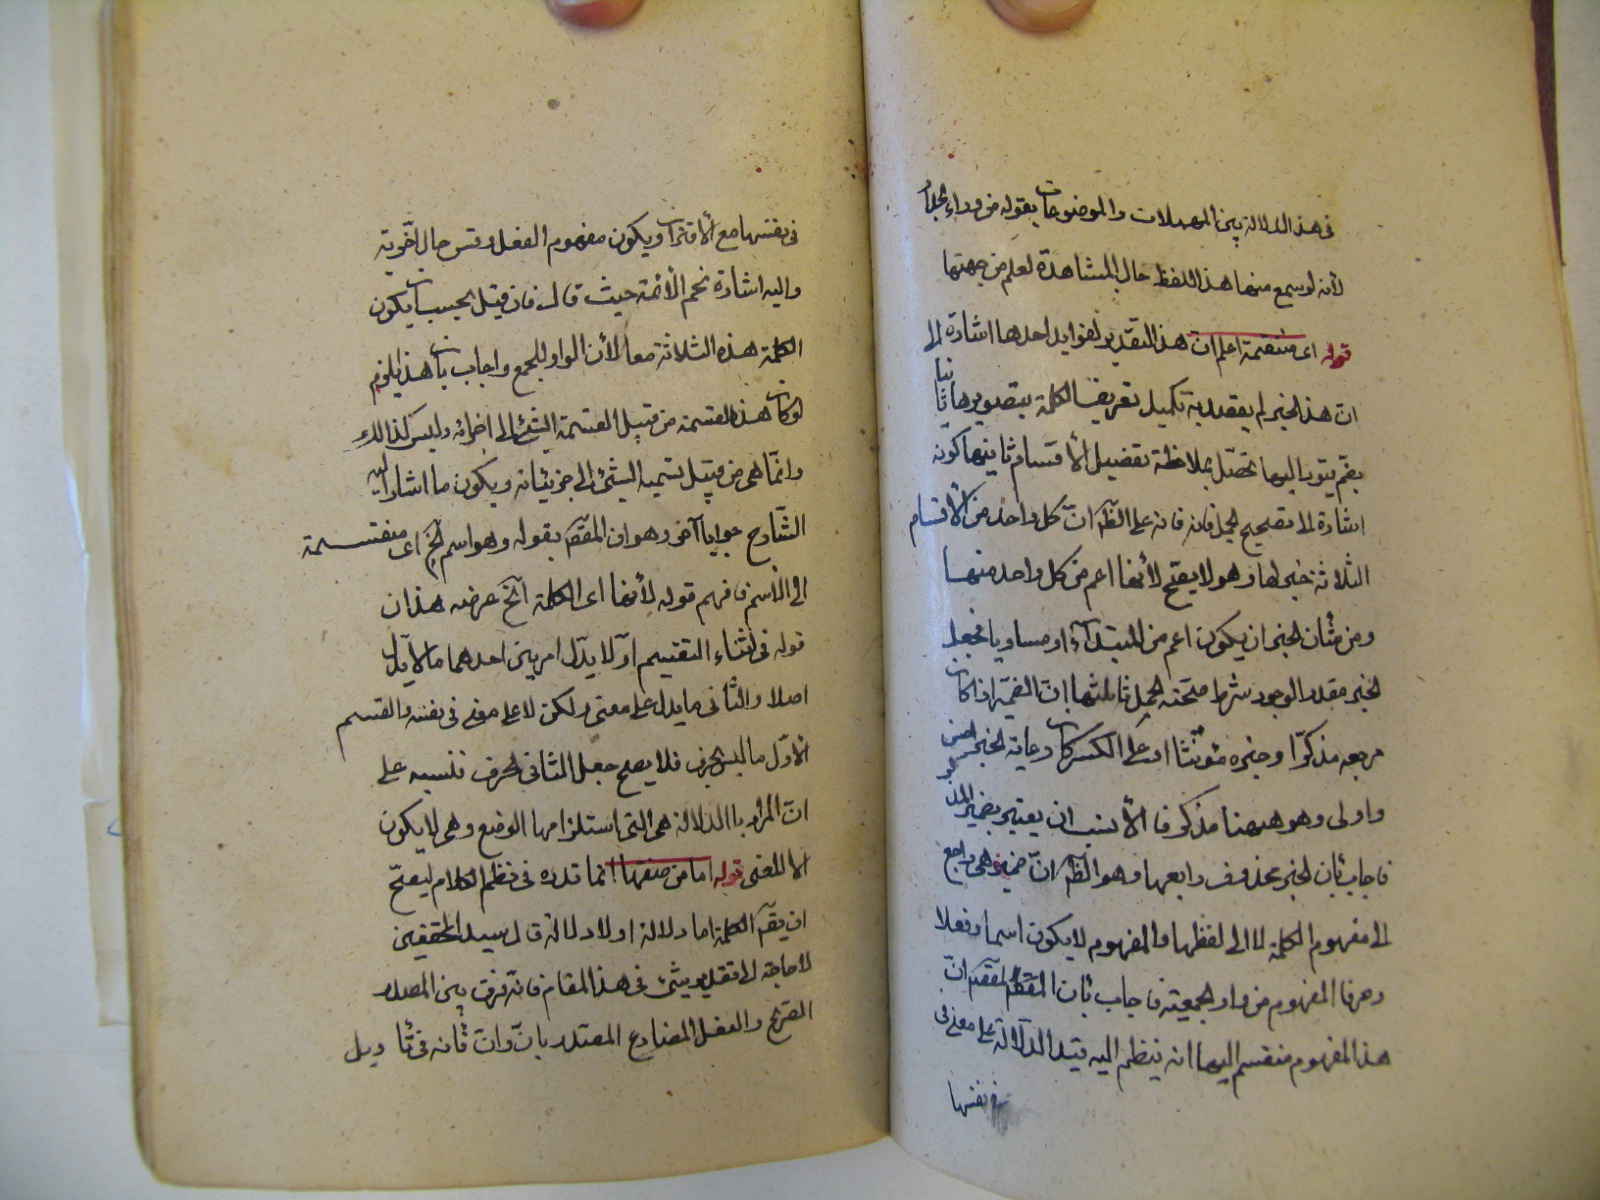 فى هذ الدلالة بين المهملات والموضوعات بقوله من وراء الجدار
لأنه لو سمع منها هذ اللفظ حال المشاهدة لعلم من جهتها
قوله اى منقسمة اعلم ان هذ التقدير لفوايد احدها اشارة الى
ان هذ الخبر لم يقصد به تكميل تعريف الكلمة بتصويرها ثانيا
اشارة الى تصحيح الحمل فانه على الظ ان كل واحد من الأقسام
الثلاثة خبر لها وهو لا يصح لأنها اعم من كل واحد منها
ومن شأن الخبر ان يكون اعم من المبتدآء او مساويا فجعل
الخبر مقدر الوجود شرط صحته الحمل ثالثها ان الضمير اذا كان
مرجعه مذكرا وخبره مؤنثا او على العكس كان رعاية الخبر احسن
واولى وهو ههنا مذكر فالأنسب ان يعتبر بضمير المذكر
فاجاب بأن الخبر محذوف رابعها وهو الظ ان ضمير هى راجع
الى مفهوم الكلمة لا الى لفظها والمفهوم لا يكون اسما وفعلا
وحرفا المفهوم من واو الجمعية فاجاب بأن المقص ان
هذ المفهوم منقسم اليها انه ينظم اليه قيد الدلالة على معنى فى
فى نفسها
فى نفسها مع الأقتران ويكون مفهوم الفعل وقس حال اخويه
واليه اشارة نجم الأئمة حيث قال فان قيل يجب ان يكون
الكلمة هذه الثلاثة معا لأن الواو للجمع واجاب بأن هذ يلزم
لو كان هذه القسمة من قبيل القسمة الشئ الى اجزائه وليس كذالك
وانما هى من قبيل تسمية الشئ الى جزئياته ويكون ما اشار اليه
الشارح جوابا آخر وهو ان المقص بقوله وهو اسم الخ اى منقسمة
الى الأسم فافهم قوله لأنها اى الكلمة آلخ عرضه هذان
قوله فى اثناء التقسيم او لا يدل امرين احدهما ما لا يدل
اصلا والثانى ما يدل على معنى ولكن لا على معنى فى نفسه والقسم
الأول ما ليس بحرف فلا يصح جعل الثانى الحرف فنسبه على
ان المراد بالدلالة هى التى استلزامها الوضع وهى لا يكون
الا للمعنى قوله اما من صفتها انما قدره فى نظم الكلام ليصح
ان يق الكلمة اما دلالة او لا دلالة قال سيد المحققين
لا حاجة الى تقدير شئ فى هذ المقام فانه فرق بين المصدر
الصريح والفعل المضارع المصدر بان وان فانه فى تأويل